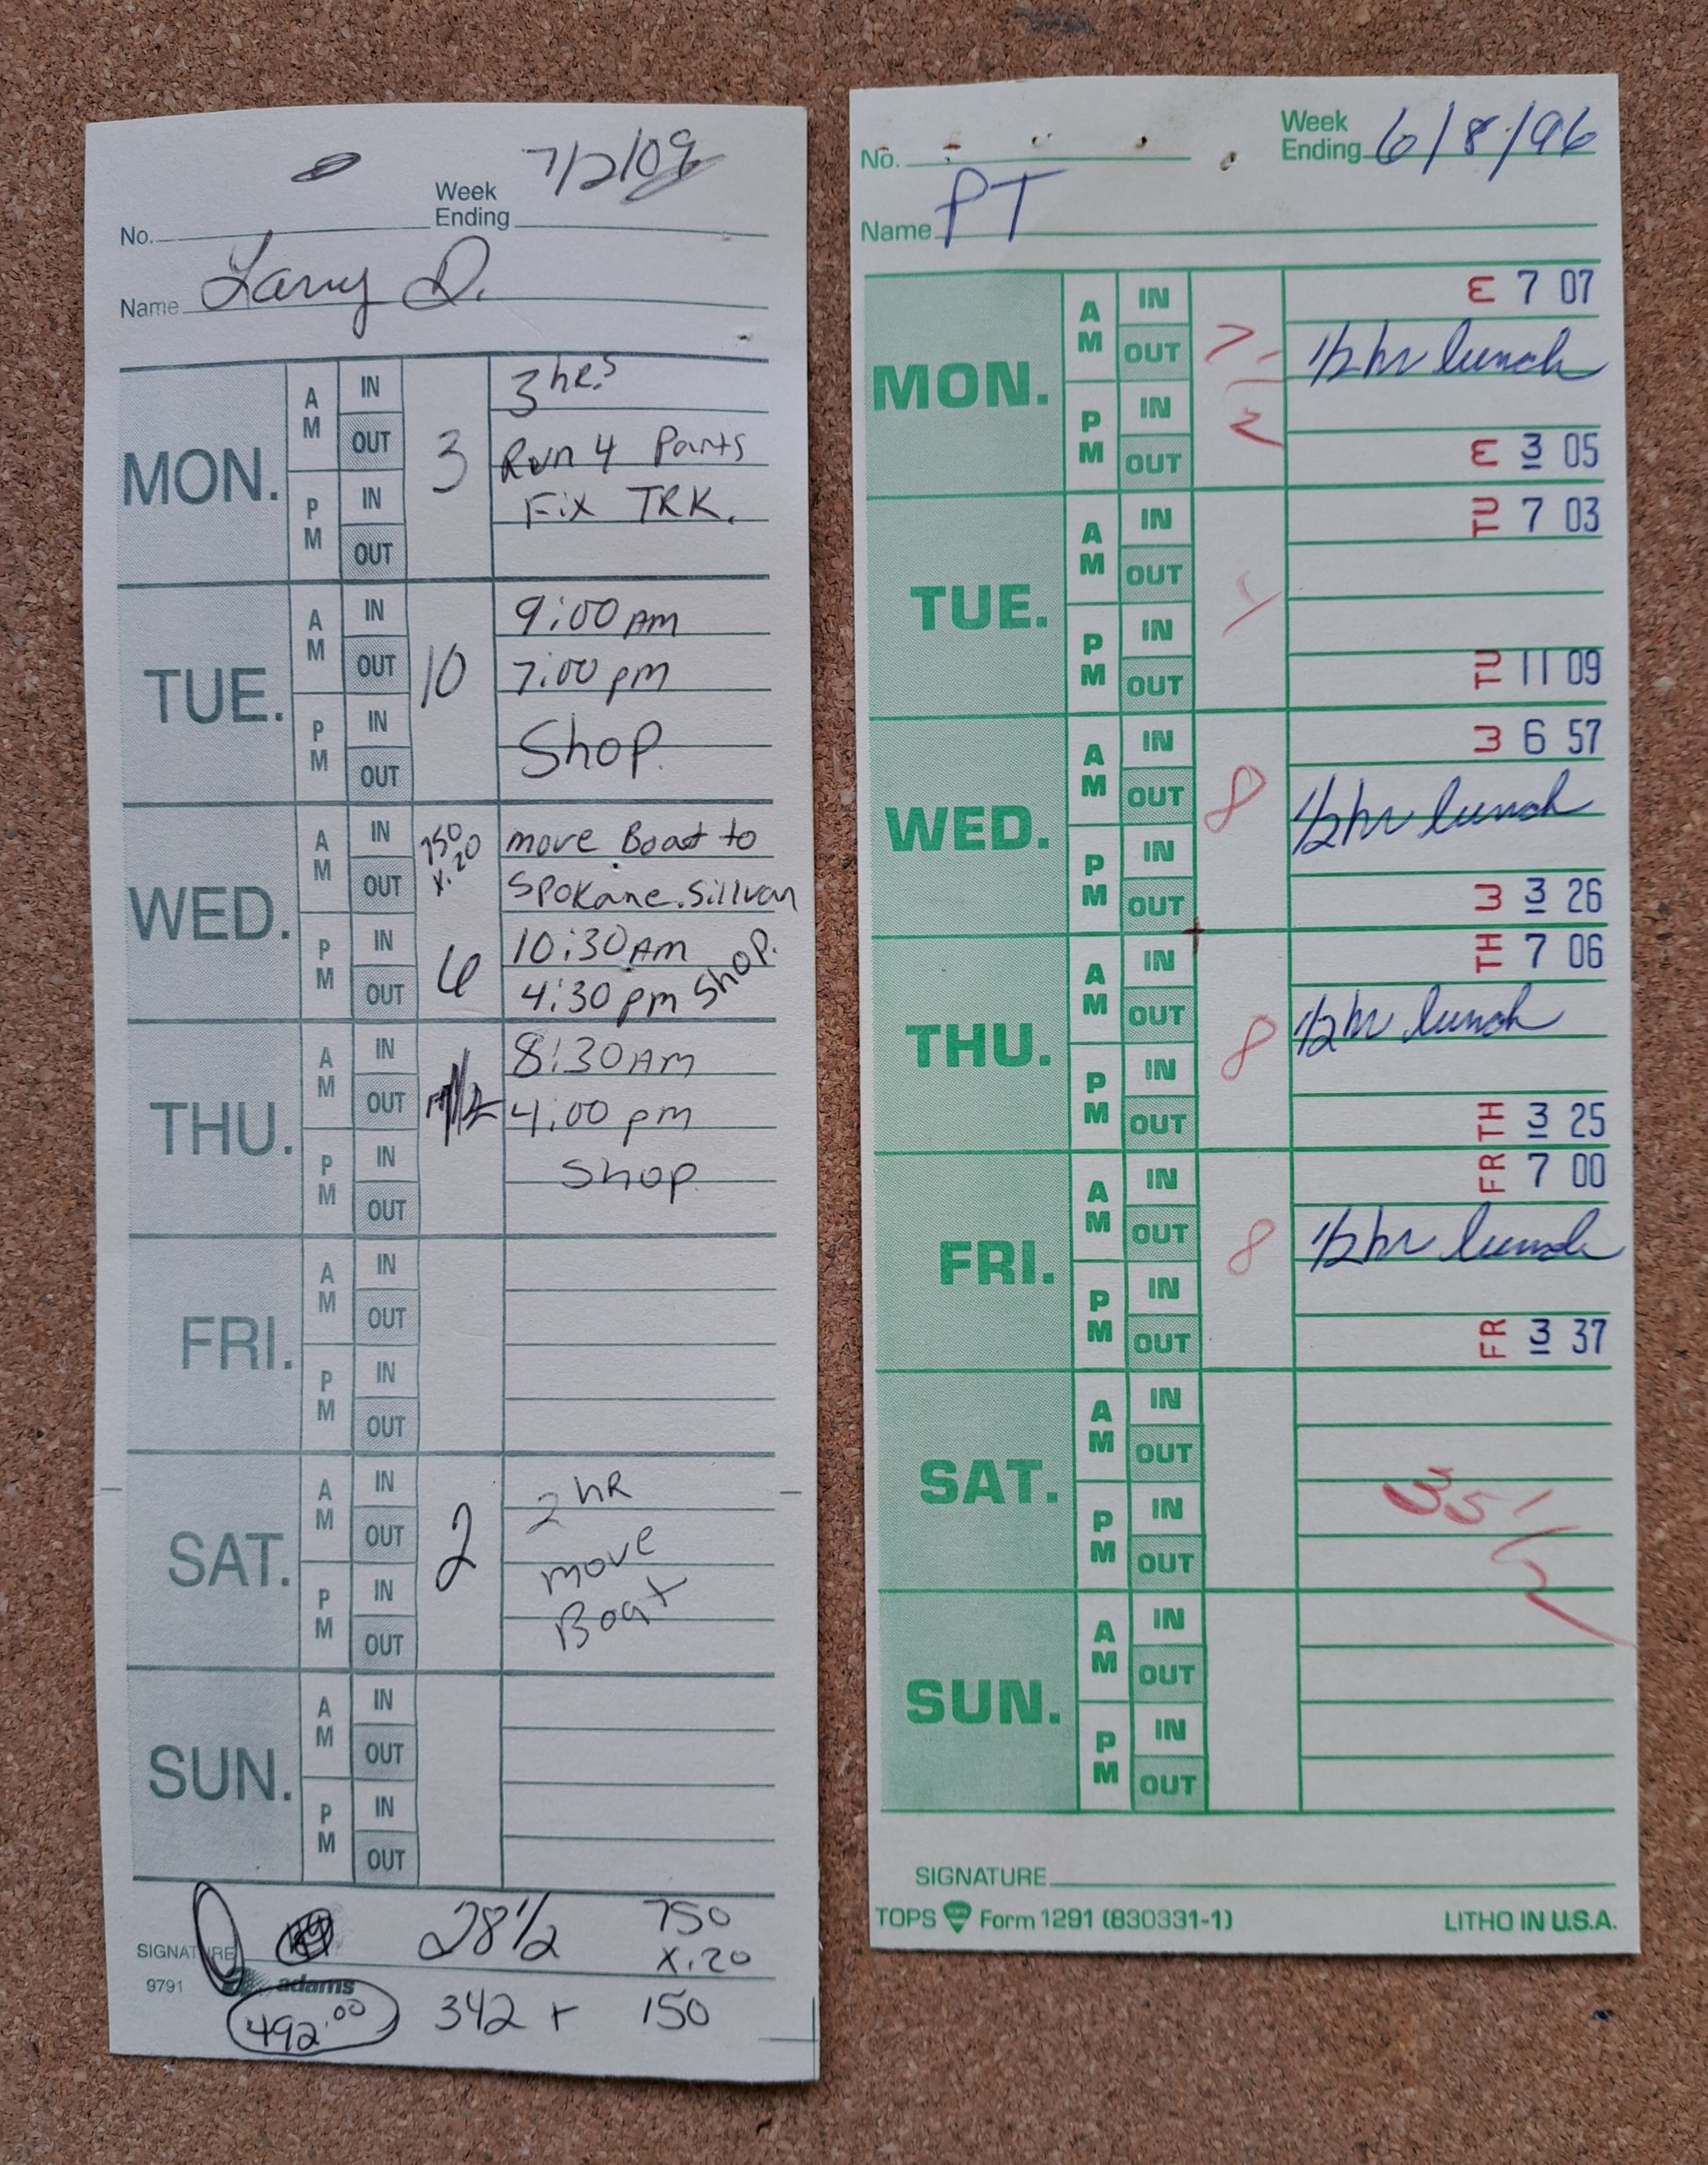 7/2/09
Week
Ending
No.
Name Larry D.
MON.
AM
IN
OUT
PM
IN
OUT
3
3 hrs
Run 4 Parts
Fix TRK.
TUE.
AM
IN
OUT
PM
IN
OUT
10
9:00 AM
7:00 pm
Shop.
WED.
AM
IN
OUT
PM
IN
OUT
750
x.20
6
move Boat to
Spokane. Sillvan
10:30 AM
4:30 pm Shop.
THU.
AM
IN
OUT
PM
IN
OUT
8:30 AM
4:00 pm
Shop
FRI.
AM
IN
OUT
PM
IN
OUT
SAT.
AM
IN
OUT
PM
IN
OUT
2
2 hR
move
Boat
SUN.
AM
IN
OUT
PM
IN
OUT
SIGNATURE
28 1/2
750
x.20
9791 adams
492.00
342 +
150
No.
Week
Ending 6/8/96
Name PT
MON.
AM
IN
OUT
PM
IN
OUT
7 1/2
M 7 07
1/2 hr lunch
M 3 05
TUE.
AM
IN
OUT
PM
IN
OUT
TU 7 03
TU 11 09
WED.
AM
IN
OUT
PM
IN
OUT
8
W 6 57
1/2 hr lunch
W 3 26
THU.
AM
IN
OUT
PM
IN
OUT
8
TH 7 06
1/2 hr lunch
TH 3 25
FRI.
AM
IN
OUT
PM
IN
OUT
8
FR 7 00
1/2 hr lunch
FR 3 37
SAT.
AM
IN
OUT
PM
IN
OUT
35 1/2
SUN.
AM
IN
OUT
PM
IN
OUT
SIGNATURE
TOPS Form 1291 (830331-1) LITHO IN U.S.A.